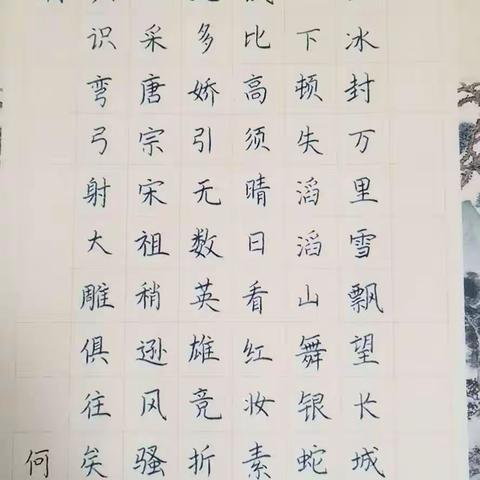 冰封万里雪飘望长城
下顿失滔滔山舞银蛇
比高须晴日看红妆素
多娇引无数英雄竞折
采唐宗宋祖稍逊风骚
识弯弓射大雕俱往矣
何